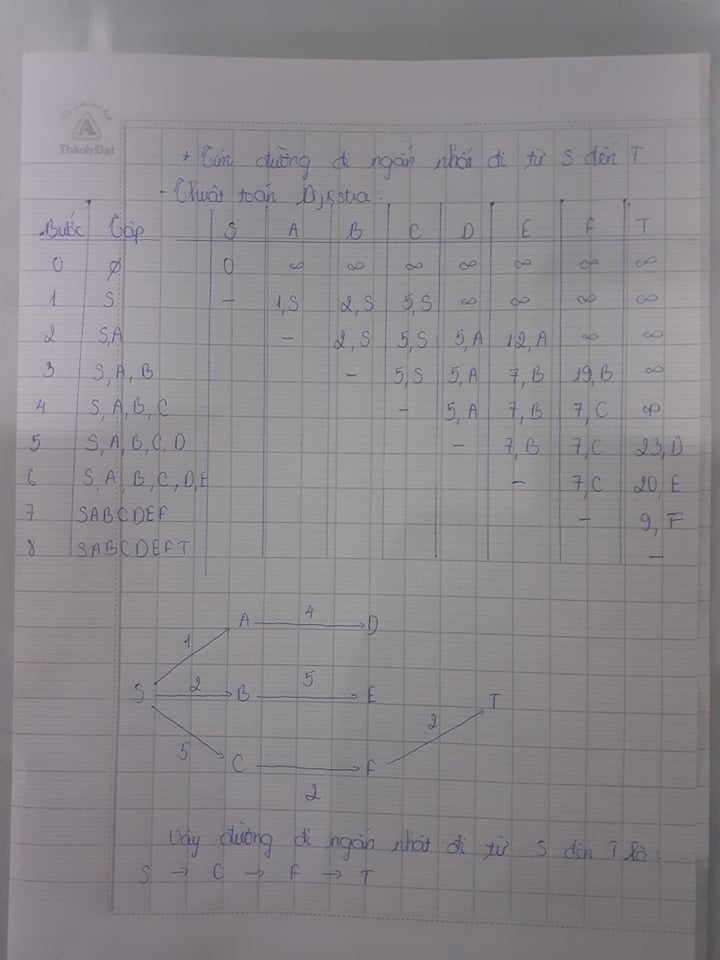 Thành Đạt
+ Tìm đường đi ngắn nhất đi từ S đến T
- Thuật toán Dijkstra:
Bước Gặp S A B C D E F T
0 ∅ 0 ∞ ∞ ∞ ∞ ∞ ∞ ∞
1 S - 1,S 2,S 5,S ∞ ∞ ∞ ∞
2 S,A - 2,S 5,S 5,A 12,A ∞ ∞
3 S,A,B - 5,S 5,A 7,B 19,B ∞
4 S,A,B,C - 5,A 7,B 7,C ∞
5 S,A,B,C,D - 7,B 7,C 23,D
6 S,A,B,C,D,E - 7,C 20,E
7 SABCDEF - 9,F
8 SABCDEFT -
A 4 D
1
S 2 B 5 E T
5 2
C F
2
Vậy đường đi ngắn nhất đi từ S đến T là:
S → C → F → T